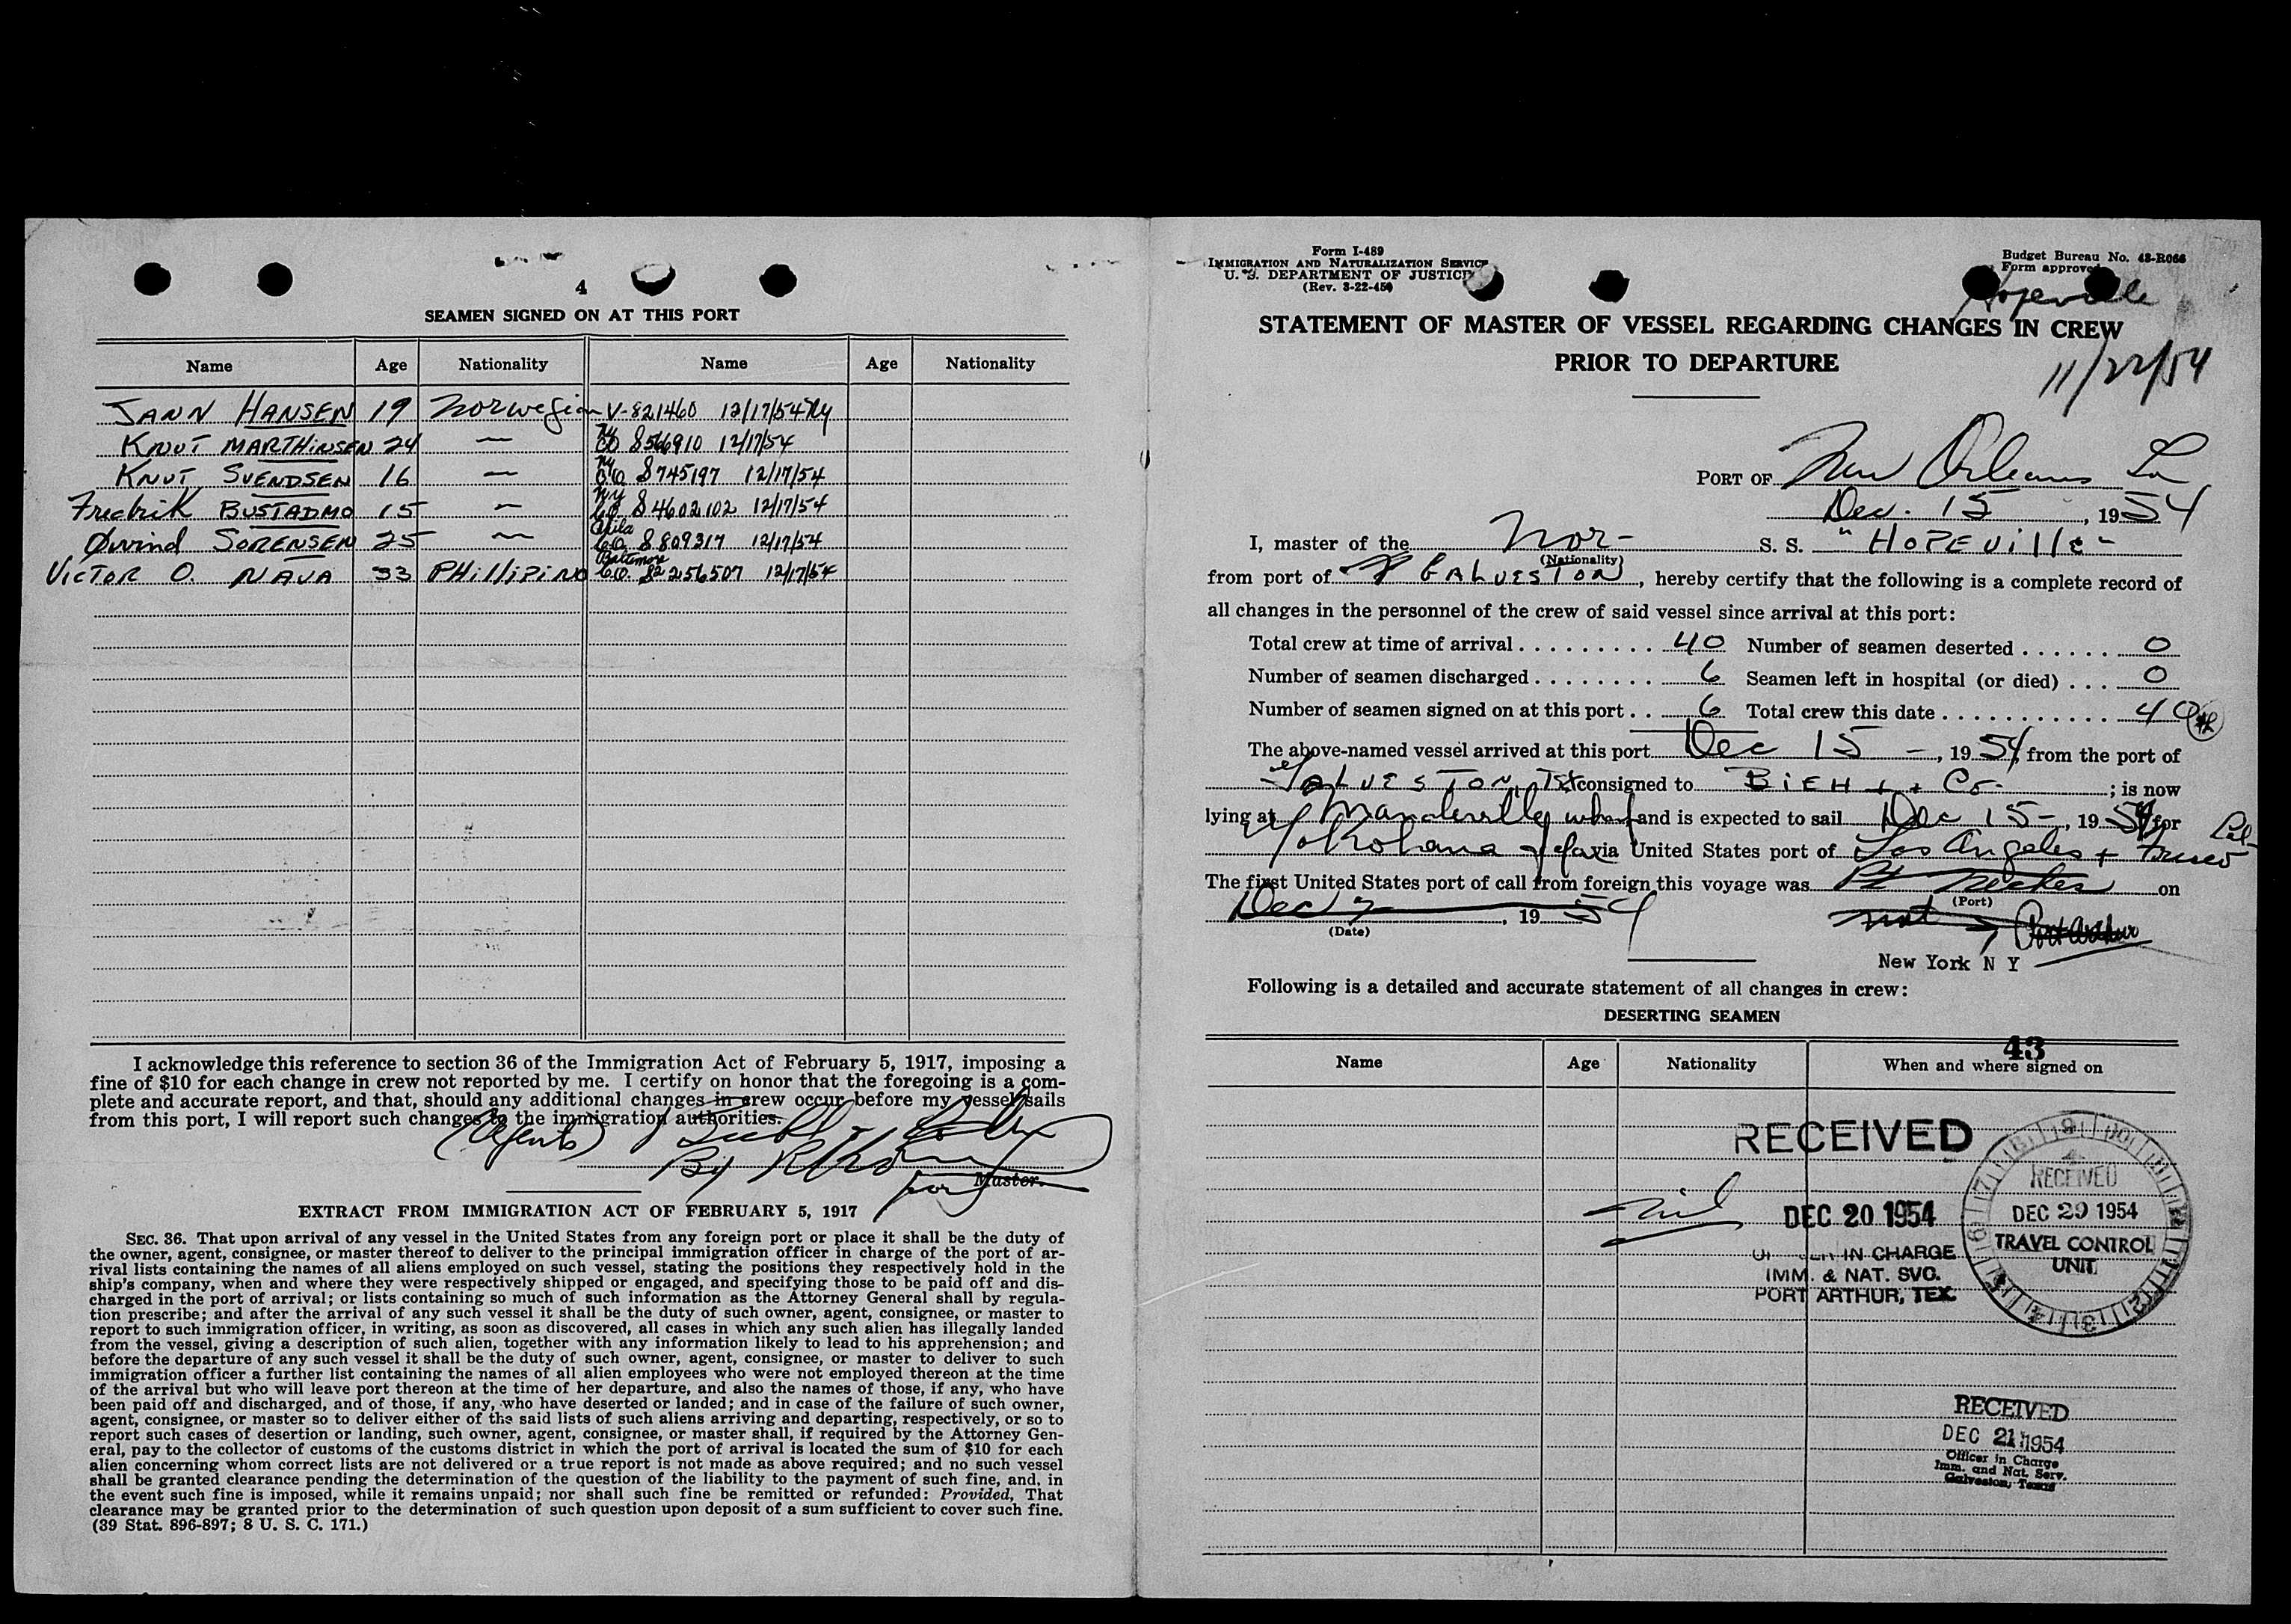 4
SEAMEN SIGNED ON AT THIS PORT
Name Age Nationality Name Age Nationality
JANN HANSEN 19 Norwegian V-821460 12/17/54 NY
KNUT MARTHINSEN 24 — NY CO 8566910 12/17/54
KNUT SVENDSEN 16 — NY C.O. 8745197 12/17/54
Fredrik BUSTADMO 15 — NY C.O. 84602102 12/17/54
Øivind SORENSEN 25 — Phila C.O. 8809317 12/17/54
VICTOR O. NAVA 33 PHILLIPINO Baltimore C.O. 82256507 12/17/54
I acknowledge this reference to section 36 of the Immigration Act of February 5, 1917, imposing a
fine of $10 for each change in crew not reported by me. I certify on honor that the foregoing is a com-
plete and accurate report, and that, should any additional changes in crew occur before my vessel sails
from this port, I will report such changes to the immigration authorities.
(Agents)
By
for Master.
EXTRACT FROM IMMIGRATION ACT OF FEBRUARY 5, 1917
SEC. 36. That upon arrival of any vessel in the United States from any foreign port or place it shall be the duty of
the owner, agent, consignee, or master thereof to deliver to the principal immigration officer in charge of the port of ar-
rival lists containing the names of all aliens employed on such vessel, stating the positions they respectively hold in the
ship's company, when and where they were respectively shipped or engaged, and specifying those to be paid off and dis-
charged in the port of arrival; or lists containing so much of such information as the Attorney General shall by regula-
tion prescribe; and after the arrival of any such vessel it shall be the duty of such owner, agent, consignee, or master to
report to such immigration officer, in writing, as soon as discovered, all cases in which any such alien has illegally landed
from the vessel, giving a description of such alien, together with any information likely to lead to his apprehension; and
before the departure of any such vessel it shall be the duty of such owner, agent, consignee, or master to deliver to such
immigration officer a further list containing the names of all alien employees who were not employed thereon at the time
of the arrival but who will leave port thereon at the time of her departure, and also the names of those, if any, who have
been paid off and discharged, and of those, if any, who have deserted or landed; and in case of the failure of such owner,
agent, consignee, or master so to deliver either of the said lists of such aliens arriving and departing, respectively, or so to
report such cases of desertion or landing, such owner, agent, consignee, or master shall, if required by the Attorney Gen-
eral, pay to the collector of customs of the customs district in which the port of arrival is located the sum of $10 for each
alien concerning whom correct lists are not delivered or a true report is not made as above required; and no such vessel
shall be granted clearance pending the determination of the question of the liability to the payment of such fine, and, in
the event such fine is imposed, while it remains unpaid; nor shall such fine be remitted or refunded: Provided, That
clearance may be granted prior to the determination of such question upon deposit of a sum sufficient to cover such fine.
(39 Stat. 896-897; 8 U. S. C. 171.)
Form I-489
IMMIGRATION AND NATURALIZATION SERVICE
U. S. DEPARTMENT OF JUSTICE
(Rev. 3-22-45)
Budget Bureau No. 43-R066
Form approved
Hopeville
STATEMENT OF MASTER OF VESSEL REGARDING CHANGES IN CREW
PRIOR TO DEPARTURE
11/22/54
PORT OF New Orleans La
Dec. 15, 1954
I, master of the Nor- S. S. "HOPEVille"
(Nationality)
from port of GALVESTON, hereby certify that the following is a complete record of
all changes in the personnel of the crew of said vessel since arrival at this port:
Total crew at time of arrival 40 Number of seamen deserted 0
Number of seamen discharged 6 Seamen left in hospital (or died) 0
Number of seamen signed on at this port 6 Total crew this date 40
The above-named vessel arrived at this port Dec 15 -, 1954, from the port of
GALVESTON, Tex consigned to BIEHL + Co.; is now
lying at Mandeville wharf and is expected to sail Dec 15-, 1954 for
Yokohama via United States port of Los Angeles + Frisco Cal-
The first United States port of call from foreign this voyage was Pt Neches on
(Port)
Dec 7, 1954
(Date)
not Port Arthur
New York N Y
Following is a detailed and accurate statement of all changes in crew:
DESERTING SEAMEN
43
Name Age Nationality When and where signed on
RECEIVED
Nil
DEC 20 1954
IN CHARGE
IMM. & NAT. SVC.
PORT ARTHUR, TEX.
RECEIVED
DEC 20 1954
TRAVEL CONTROL
UNIT
RECEIVED
DEC 21 1954
Officer in Charge
Imm. and Nat. Serv.
Galveston, Texas